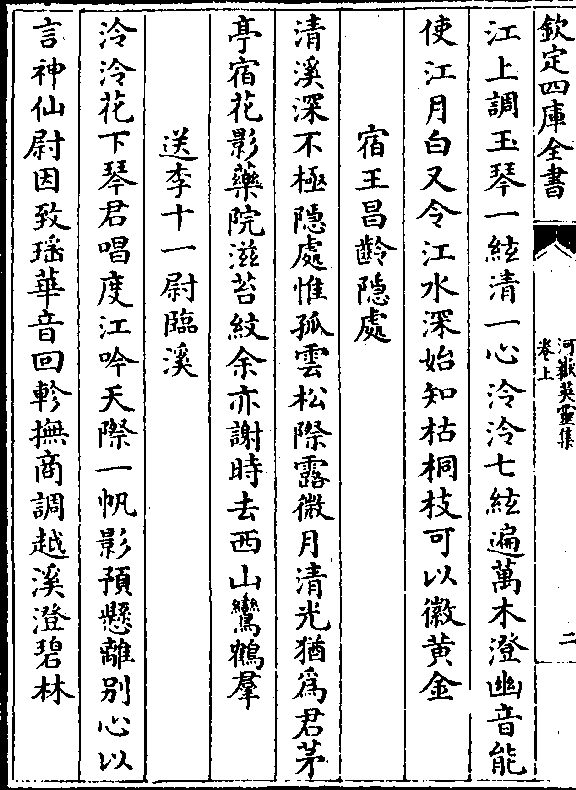 欽定四庫全書
河嶽英靈集
卷上
二
江上調玉琴一絃清一心泠泠七絃遍萬木澄幽音能
使江月白又令江水深始知枯桐枝可以徽黄金
宿王昌齡隠處
清溪深不極隠處惟孤雲松際露微月清光猶為君茅
亭宿花影藥院滋苔紋余亦謝時去西山鸞鶴羣
送李十一尉臨溪
泠泠花下琴君唱度江吟天際一帆影預懸離别心以
言神仙尉因致瑶華音回軫撫商調越溪澄碧林